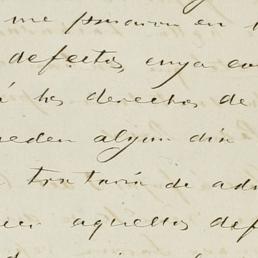 me pusieron en
defectos cuya co
á los derechos de
ueden algun dia
trataría de ad
aquellos def